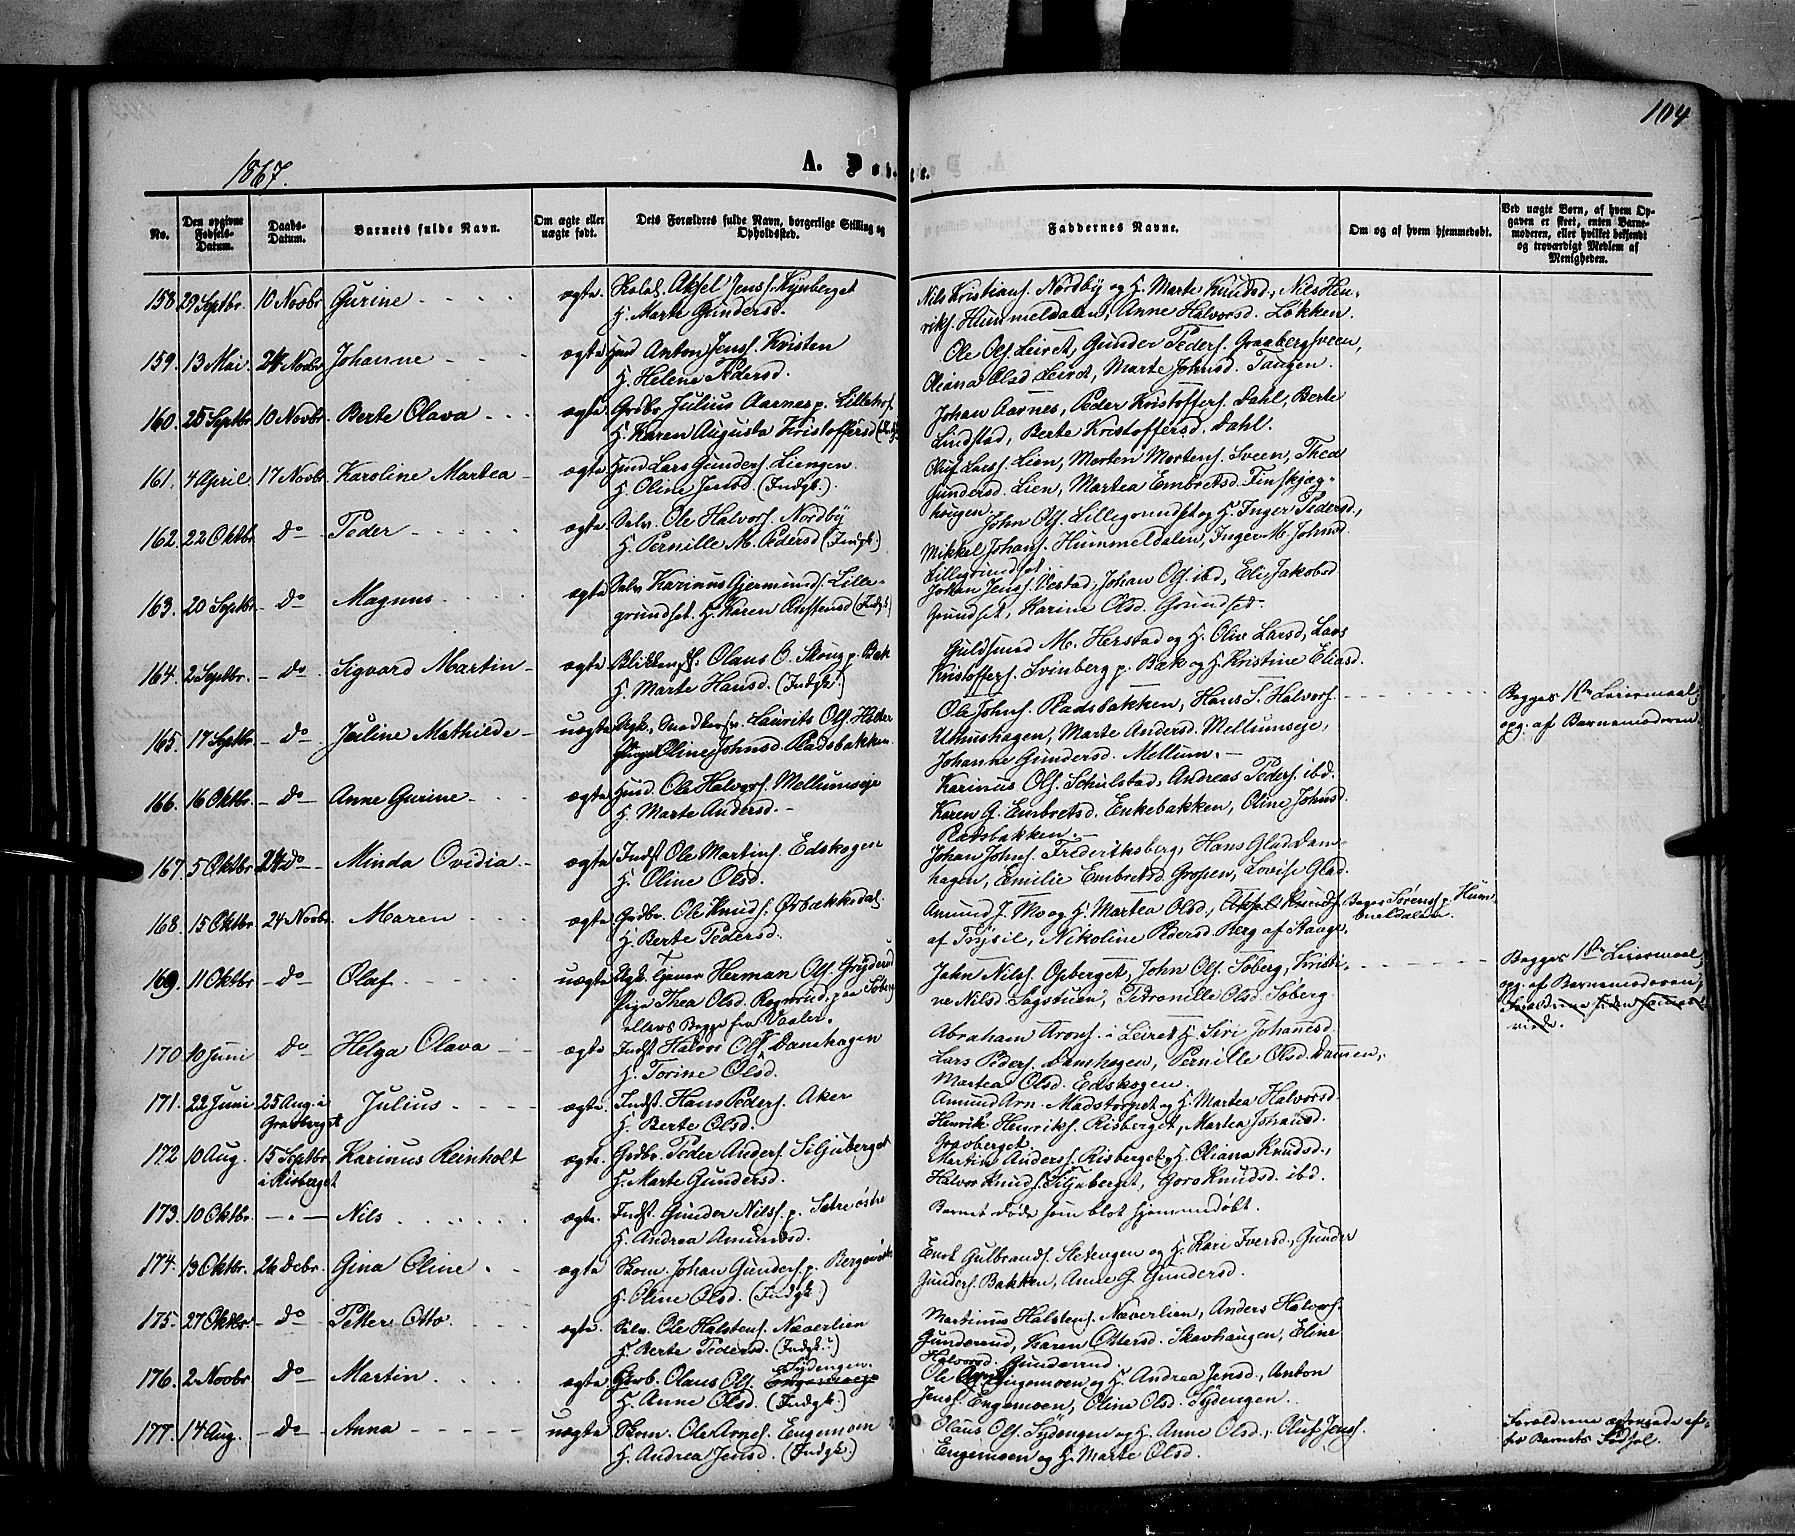 104
1867.
A. Døbte.
No. | Den opgivne Fødsels-Datum. | Daabs-Datum. | Barnets fulde Navn. | Om ægte eller uægte født. | Dets Forældres fulde Navn, borgerlige Stilling og Opholdssted. | Faddernes Navne. | Om og af hvem hjemmedøbt. | Ved uægte Børn, af hvem Opgaven er skeet, enten Barnemoderen, eller hvilket bekjendt og troværdigt Medlem af Menigheden.
158 29 Septbr. 10 Novbr. Gurine ægte. Aksel Jens. Kynberget
H. Marte Gundersd.
Nils Kristians. Nordby og H. Marte Knudsd., Nils Hen-
riks. Hummeldalen, Anne Halvorsd. Løkken.
159. 13 Mai. 24 Novbr. Johanne ægte Hmd Anton Jens. Kristen
H. Helene Pedersd.
Ole Ols. Leiret, Gunder Peders. Graabergsveen,
Oliana Olsd Leiret, Marte Johnsd. Taagen.
160. 25 Septbr. 10 Novbr. Berte Olava ægte Grdbr. Julius Aarnes p. Lillehof
H. Karen Augusta Kristoffersd
Johan Aarnes, Peder Kristoffers. Dahl, Berte
Lindstad, Berte Kristoffersd. Dahl.
161. 4 April 17 Novbr. Karoline Martea ægte Hmd Lars Gunders. Liengen.
H. Oline Jensd. (Indgk.)
Oluf Lars. Lien, Morten Mortens. Sveen, Thea
Gundersd. Lien, Martea Embretsd. Finskjæg-
haugen.
162. 22 Oktbr. Do Peder ægte. Selv. Ole Halvors. Nordby
H. Pernille M. Pedersd (Indgk.)
John Ols. Lillegrundset og H. Inger Pedersd.,
Mikkel Johans. Hummeldalen, Inger M. Johnsd.
Lillegrundset.
163. 20 Septbr. Do Magnus ægte Selv. Karinus Gjermunds. Lille-
grundset. H. Karen (Indgk.)
Johan Jens. Vestad, Johan Ols. ibd, Eli Jakobsd
Grundset, Karine Olsd. Grundset.
164. 2 Septbr. Do Sigvard Martin ægte Blikkensl. Olaus O. Skoug p. Bæk
H. Marte Hansd. (Indgk.)
Guldsmed M. Herstad og H. Olive Larsd, Lars
Kristoffers. Svinberg p. Bæk og H. Kristine Eliasd.
165. 17 Septbr. Do Juline Mathilde uægte Ugk. Snedkersv. Laurits Ols. Hitter
Pige Oline Johnsd. Pladsbakken.
Ole Johns. Pladsbakken, Hans S. Halvors.
Utnushagen, Marte Andersd. Mellumseje,
Johanne Gundersd. Mellum.
Begges 1ste Leiermaal,
opg. af Barnemoderen.
166. 16 Oktbr. Do Anne Gurine ægte Hmd. Ole Halvors. Mellumseje
H. Marte Andersd.
Karinus Ols. Schulstad, Andreas Peders. ibd.
Karen G. Embretsd. Enkebakken, Oline Johnsd.
Pladsbakken.
167. 5 Oktbr. 24 Do Minda Ovidia ægte Indst. Ole Martins. Edskogen
H. Oline Olsd.
Johan Johns. Frederiksberg, Hans Glad Dam-
hagen, Emilie Embretsd. Gropen, Lovise Glad.
168. 15 Oktbr. 24 Novbr. Maren ægte Grdbr. Ole Knuds. Ørbækkedal.
H. Berte Pedersd.
Amund J. Mo og H. Martea Olsd., Aksel Knuds.
af Trysil, Nikoline Pedersd. Berg af Stange.
Boger Sørens. p. Hum-
meldalen.
169. 11 Oktbr. Do Olaf uægte Ugk. Garver Herman Ols. Gryderud
Pige Thea Olsd. Rogneruds. paa Søberg
ellers Begge fra Vaaler.
Jahn Nils. Opberget, John Ols. Søberg, Kristi-
ne Nilsd. Sagstuen, Petronille Olsd. Søberg
Begges 1ste Leiermaal,
opg. af Barnemoderen,
170 10 Juni Do Helga Olava ægte Indst Halvor Ols. Damhagen
H. Torine Olsd.
Abraham Arons. i Leiret H. Siri Johannesd.
Lars Peders. Damhagen, Pernille Olsd. Dammen,
Martea Olsd. Edskogen.
171. 22 Juni 25 Aug. i Graaberget Julius ægte. Indst. Hans Peders. Aker
H. Berte Olsd.
Amund Arn. Madstorpet og H. Martea Halvorsd.
Henrik Henriks. Risberget, Martea Johansd.
Graaberget.
172 10 Aug. 15 Septbr. i Risberget Karinus Reinholt ægte. Grdbr. Peder Anders. Siljuberget
H. Marte Gundersd.
Martin Anders. Risberget og H. Oliana Knudsd.,
Halvor Knuds. Siljuberget, Goro Knudsd. ibd.
173. 10 Oktbr. Nils ægte. Indst. Gunder Nils. p. Sætre østre
H. Andrea Amundsd.
Barnet døde som blot hjemmedøbt.
174. 13 Oktbr. 26 Debr. Gina Oline ægte Skom. Johan Gunders. p. Berger
H. Oline Olsd. (Indgk.)
Enok Gulbrands. Sletengen og H. Kari Iversd, Gunder
Gunders. Bakken, Anne G. Gundersd.
175. 27 Oktbr. Do Petter Otto ægte. Selv. Ole Halstens. Næverlien
H. Berte Pedersd. (Indgk.)
Martinus Halstens. Næverlien, Anders Halvors.
Gunderud, Karen Ottersd. Skavhaugen, Eline
Halvorsd. Gunderud.
176. 2 Novbr. Do Martin ægte Gerb. Olaus Ols. Sydengen.
H. Anne Olsd. (Indgk.)
Ole Arnes. Engemoen og H. Andrea Jensd., Anton
Jens. Engemoen, Oline Olsd. Sydengen.
177. 14 Aug. Do Anna uægte Skom. Ole Arnes. Engemoen
H. Andrea Jensd. (Indgk.)
Olaus Ols. Sydengen og H. Anne Olsd., Oluf Jens.
Engemoen og H. Marte Olsd.
Forældrene ægteviede ef-
ter Barnets Fødsel.